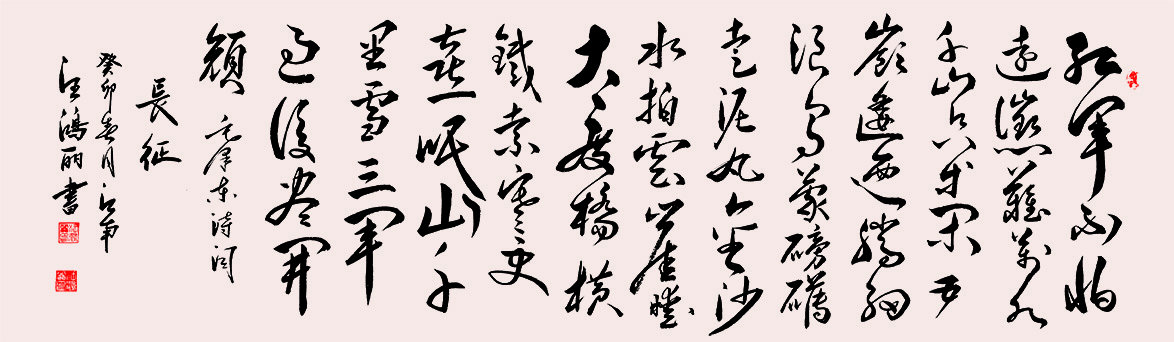 紅軍不怕
遠徵難萬水
千山只等閑五
嶺逶迤騰細
浪烏蒙磅礴
走泥丸金沙
水拍雲崖暖
大渡橋橫
鐵索寒更
喜岷山千
里雪三軍
過後盡開
顏 毛澤東詩詞
長征
癸卯春月
汪鴻丽書